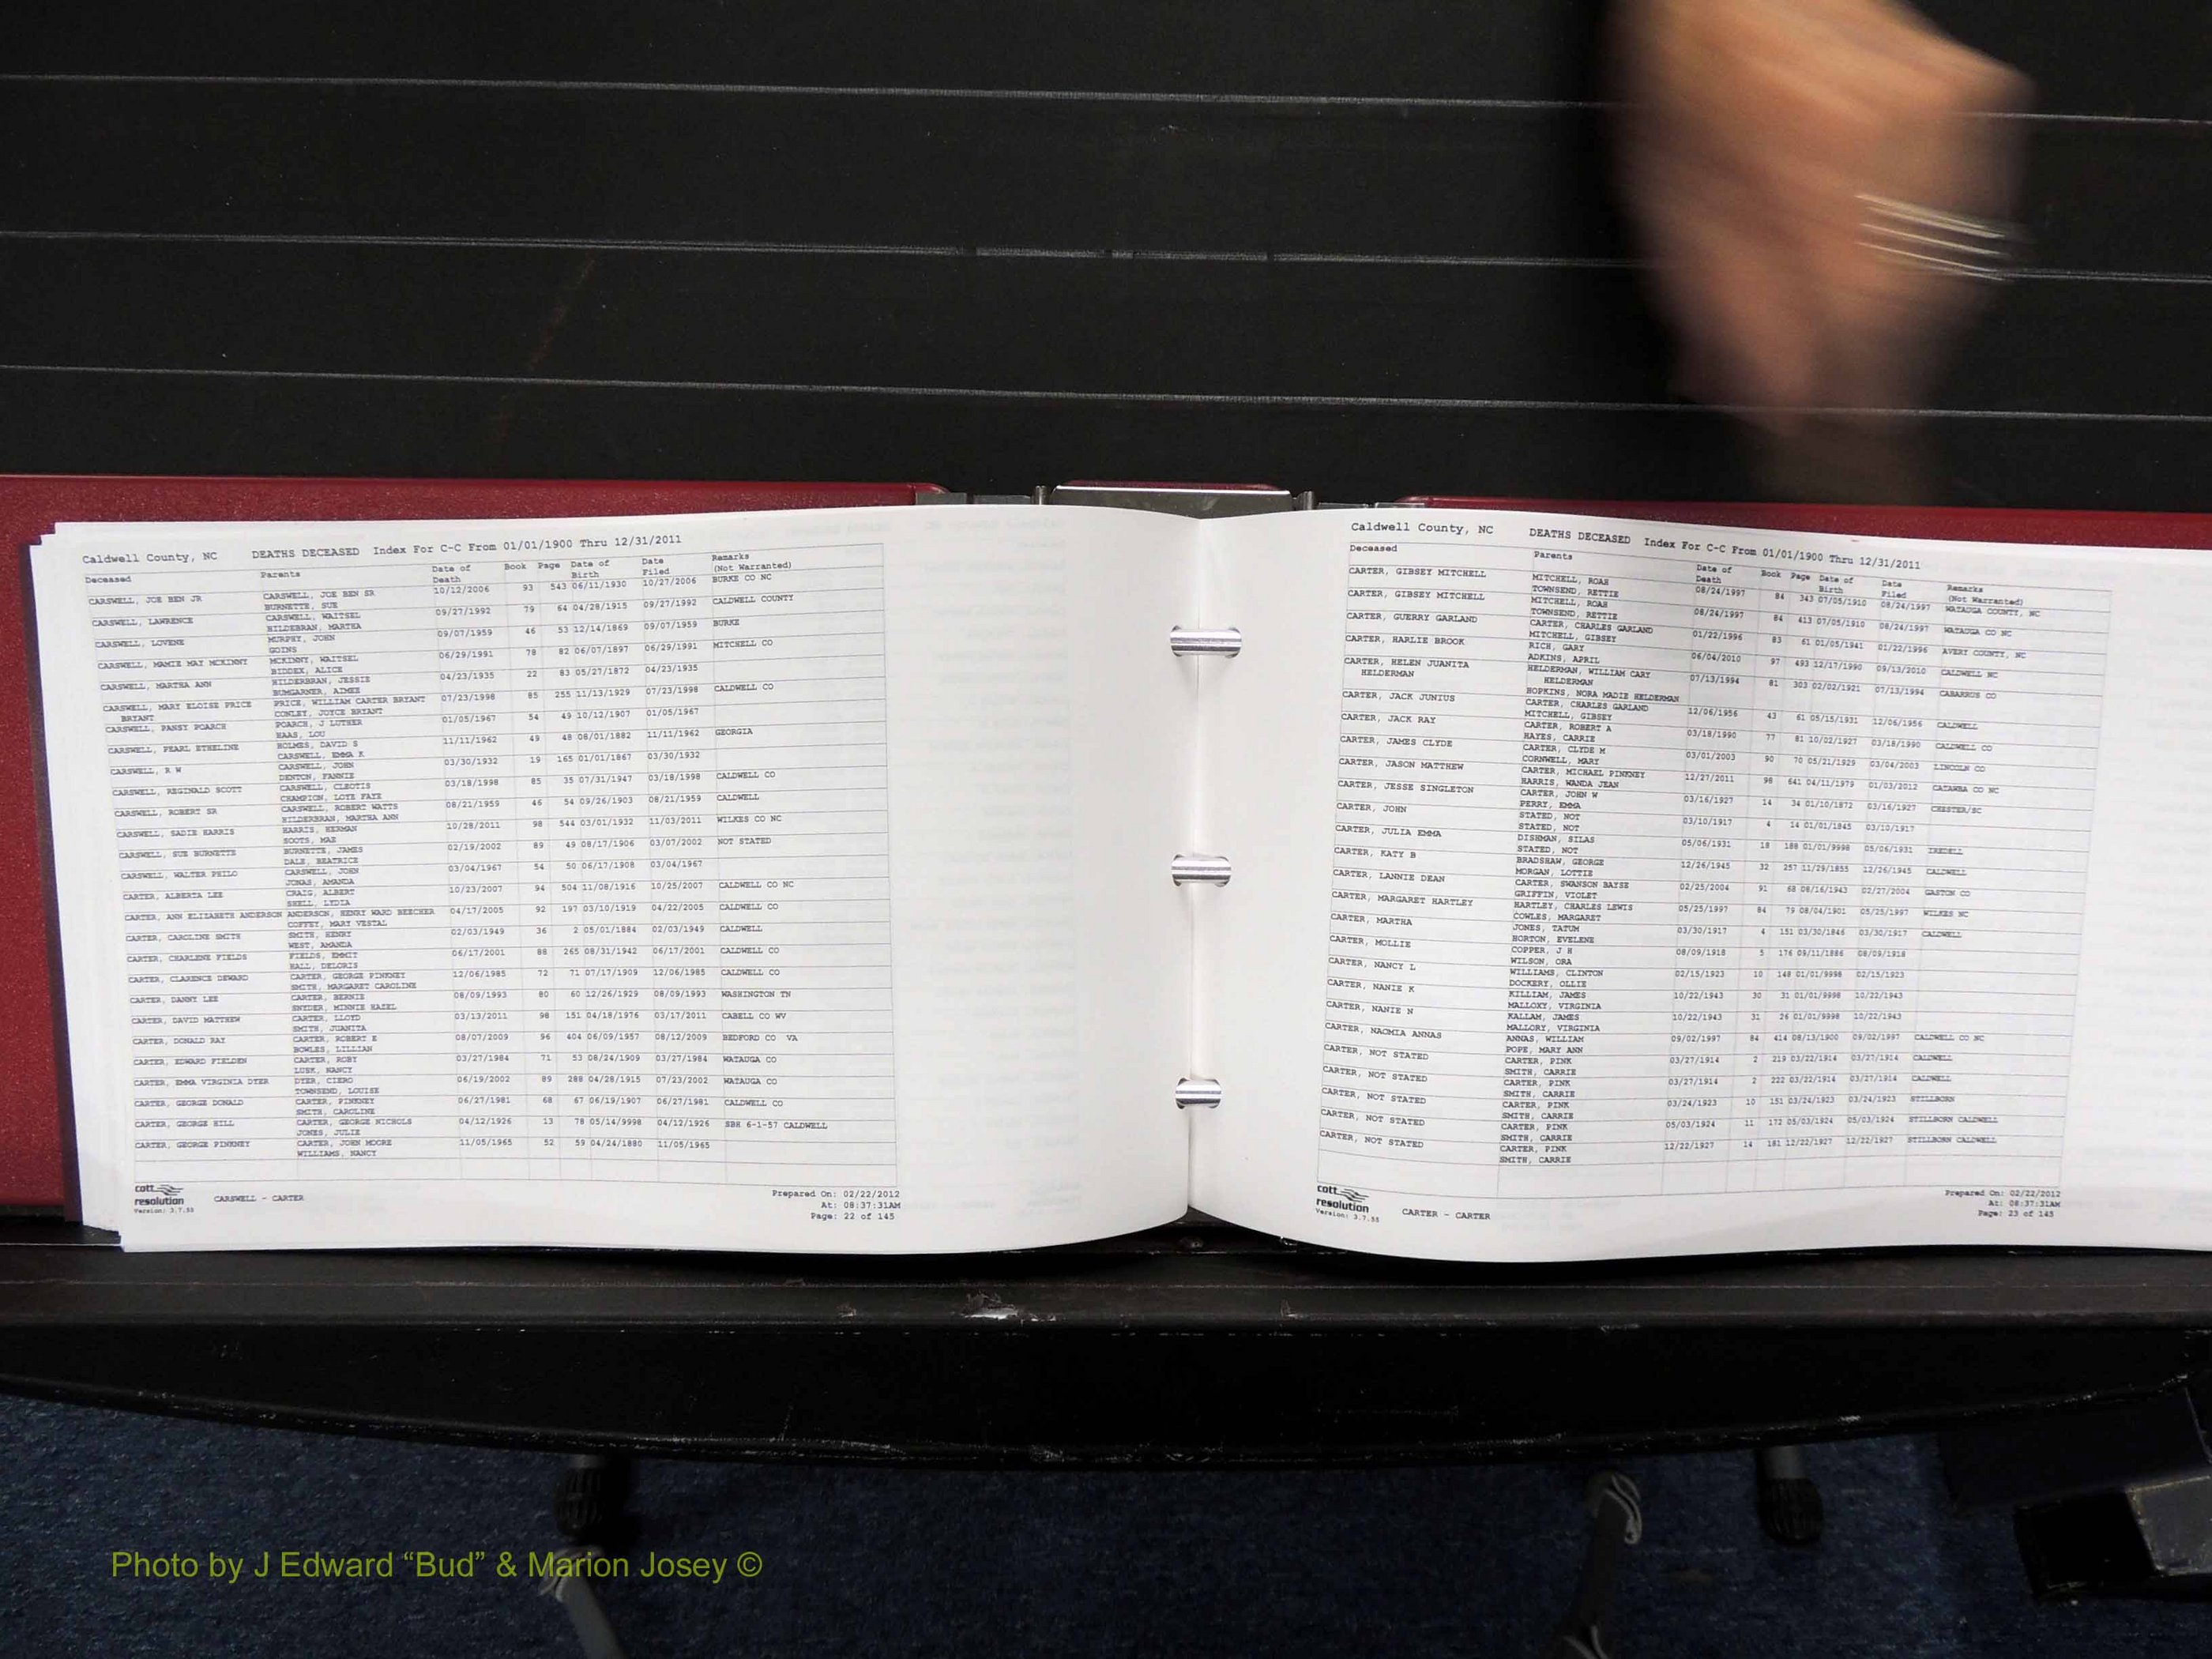 Caldwell County, NC DEATHS DECEASED Index For C-C From 01/01/1900 Thru 12/31/2011
Deceased Parents Date of Death Book Page Date of Birth Date Filed Remarks (Not Warranted)
CARSWELL, JOE BEN JR CARSWELL, JOE BEN SR 10/12/2006 93 543 06/11/1930 10/27/2006 BURKE CO NC
BURNETTE, SUE
CARSWELL, LAWRENCE CARSWELL, WAITSEL 09/27/1992 79 64 04/28/1915 09/27/1992 CALDWELL COUNTY
HILDEBRAN, MARTHA
CARSWELL, LOVENE MURPHY, JOHN 09/07/1959 46 53 12/14/1869 09/07/1959 BURKE
GOINS
CARSWELL, MAMIE MAY MCKINNY MCKINNY, WAITSEL 06/29/1991 78 82 06/07/1897 06/29/1991 MITCHELL CO
BIDDEX, ALICE
CARSWELL, MARTHA ANN HILDERBRAN, JESSIE 04/23/1935 22 83 05/27/1872 04/23/1935
BUMGARNER, AIMEE
CARSWELL, MARY ELOISE PRICE PRICE, WILLIAM CARTER BRYANT 07/23/1998 85 255 11/13/1929 07/23/1998 CALDWELL CO
BRYANT CONLEY, JOYCE BRYANT
CARSWELL, PANSY POARCH POARCH, J LUTHER 01/05/1967 54 49 10/12/1907 01/05/1967
HAAS, LOU
CARSWELL, PEARL ETHELINE HOLMES, DAVID S 11/11/1962 49 48 08/01/1882 11/11/1962 GEORGIA
CARSWELL, EMMA K
CARSWELL, R W CARSWELL, JOHN 03/30/1932 19 165 01/01/1867 03/30/1932
DENTON, FANNIE
CARSWELL, REGINALD SCOTT CARSWELL, CLEOTIS 03/18/1998 85 35 07/31/1947 03/18/1998 CALDWELL CO
CHAMPION, LOTE FAYE
CARSWELL, ROBERT SR CARSWELL, ROBERT WATTS 08/21/1959 46 54 09/26/1903 08/21/1959 CALDWELL
HILDERBRAN, MARTHA ANN
CARSWELL, SADIE HARRIS HARRIS, HERMAN 10/28/2011 98 544 03/01/1932 11/03/2011 WILKES CO NC
SOOTS, MAE
CARSWELL, SUE BURNETTE BURNETTE, JAMES 02/19/2002 89 49 08/17/1906 03/07/2002 NOT STATED
DALE, BEATRICE
CARSWELL, WALTER PHILO CARSWELL, JOHN 03/04/1967 54 50 06/17/1908 03/04/1967
JONAS, AMANDA
CARTER, ALBERTA LEE CRAIG, ALBERT 10/23/2007 94 504 11/08/1916 10/25/2007 CALDWELL CO NC
SHELL, LYDIA
CARTER, ANN ELIZABETH ANDERSON ANDERSON, HENRY WARD BEECHER 04/17/2005 92 197 03/10/1919 04/22/2005 CALDWELL CO
COFFEY, MARY VESTAL
CARTER, CAROLINE SMITH SMITH, HENRY 02/03/1949 36 2 05/01/1884 02/03/1949 CALDWELL
WEST, AMANDA
CARTER, CHARLENE FIELDS FIELDS, EMMIT 06/17/2001 88 265 08/31/1942 06/17/2001 CALDWELL CO
HALL, DELORIS
CARTER, CLARENCE DEWARD CARTER, GEORGE PINKNEY 12/06/1985 72 71 07/17/1909 12/06/1985 CALDWELL CO
SMITH, MARGARET CAROLINE
CARTER, DANNY LEE CARTER, BERNIE 08/09/1993 80 60 12/26/1929 08/09/1993 WASHINGTON TN
SNYDER, MINNIE HAZEL
CARTER, DAVID MATTHEW CARTER, LLOYD 03/13/2011 98 151 04/18/1976 03/17/2011 CABELL CO WV
SMITH, JUANITA
CARTER, DONALD RAY CARTER, ROBERT E 08/07/2009 96 404 06/09/1957 08/12/2009 BEDFORD CO VA
BOWLES, LILLIAN
CARTER, EDWARD FIELDEN CARTER, ROBY 03/27/1984 71 53 08/24/1909 03/27/1984 WATAUGA CO
LUSK, NANCY
CARTER, EMMA VIRGINIA DYER DYER, CIERO 06/19/2002 89 288 04/28/1915 07/23/2002 WATAUGA CO
TOWNSEND, LOUISE
CARTER, GEORGE DONALD CARTER, PINKNEY 06/27/1981 68 67 06/19/1907 06/27/1981 CALDWELL CO
SMITH, CAROLINE
CARTER, GEORGE HILL CARTER, GEORGE NICHOLS 04/12/1926 13 78 05/14/9998 04/12/1926 SBH 6-1-57 CALDWELL
JONES, JULIE
CARTER, GEORGE PINKNEY CARTER, JOHN MOORE 11/05/1965 52 59 04/24/1880 11/05/1965
WILLIAMS, NANCY
cott
resolution
Version: 3.7.55
CARSWELL - CARTER
Prepared On: 02/22/2012
At: 08:37:31AM
Page: 22 of 145
Caldwell County, NC DEATHS DECEASED Index For C-C From 01/01/1900 Thru 12/31/2011
Deceased Parents Date of Death Book Page Date of Birth Date Filed Remarks (Not Warranted)
CARTER, GIBSEY MITCHELL MITCHELL, ROAH 08/24/1997 84 343 07/05/1910 08/24/1997 WATAUGA COUNTY, NC
TOWNSEND, RETTIE
CARTER, GIBSEY MITCHELL MITCHELL, ROAH 08/24/1997 84 413 07/05/1910 08/24/1997 WATAUGA CO NC
TOWNSEND, RETTIE
CARTER, GUERRY GARLAND CARTER, CHARLES GARLAND 01/22/1996 83 61 01/05/1941 01/22/1996 AVERY COUNTY, NC
MITCHELL, GIBSEY
CARTER, HARLIE BROOK RICH, GARY 06/04/2010 97 493 12/17/1990 09/13/2010 CALDWELL NC
ADKINS, APRIL
CARTER, HELEN JUANITA HELDERMAN, WILLIAM CARY 07/13/1994 81 303 02/02/1921 07/13/1994 CABARRUS CO
HELDERMAN HELDERMAN
HOPKINS, NORA MADIE HELDERMAN
CARTER, JACK JUNIUS CARTER, CHARLES GARLAND 12/06/1956 43 61 05/15/1931 12/06/1956 CALDWELL
MITCHELL, GIBSEY
CARTER, JACK RAY CARTER, ROBERT A 03/18/1990 77 81 10/02/1927 03/18/1990 CALDWELL CO
HAYES, CARRIE
CARTER, JAMES CLYDE CARTER, CLYDE M 03/01/2003 90 70 05/21/1929 03/04/2003 LINCOLN CO
CORNWELL, MARY
CARTER, JASON MATTHEW CARTER, MICHAEL PINKNEY 12/27/2011 98 641 04/11/1979 01/03/2012 CATAWBA CO NC
HARRIS, WANDA JEAN
CARTER, JESSE SINGLETON CARTER, JOHN W 03/16/1927 14 34 01/10/1872 03/16/1927 CHESTER/SC
PERRY, EMMA
CARTER, JOHN STATED, NOT 03/10/1917 4 14 01/01/1845 03/10/1917
STATED, NOT
CARTER, JULIA EMMA DISHMAN, SILAS 05/06/1931 18 188 01/01/9998 05/06/1931 IREDELL
STATED, NOT
CARTER, KATY B BRADSHAW, GEORGE 12/26/1945 32 257 11/29/1855 12/26/1945 CALDWELL
MORGAN, LOTTIE
CARTER, LANNIE DEAN CARTER, SWANSON BAYSE 02/25/2004 91 68 08/16/1943 02/27/2004 GASTON CO
GRIFFIN, VIOLET
CARTER, MARGARET HARTLEY HARTLEY, CHARLES LEWIS 05/25/1997 84 79 08/04/1901 05/25/1997 WILKES NC
COWLES, MARGARET
CARTER, MARTHA JONES, TATUM 03/30/1917 4 151 03/30/1846 03/30/1917 CALDWELL
HORTON, EVELENE
CARTER, MOLLIE COPPER, J H 08/09/1918 5 176 09/11/1886 08/09/1918
WILSON, ORA
CARTER, NANCY L WILLIAMS, CLINTON 02/15/1923 10 148 01/01/9998 02/15/1923
DOCKERY, OLLIE
CARTER, NANIE K KILLIAM, JAMES 10/22/1943 30 31 01/01/9998 10/22/1943
MALLOXY, VIRGINIA
CARTER, NANIE N KALLAM, JAMES 10/22/1943 31 26 01/01/9998 10/22/1943
MALLORY, VIRGINIA
CARTER, NAOMIA ANNAS ANNAS, WILLIAM 09/02/1997 84 414 08/13/1900 09/02/1997 CALDWELL CO NC
POPE, MARY ANN
CARTER, NOT STATED CARTER, PINK 03/27/1914 2 219 03/22/1914 03/27/1914 CALDWELL
SMITH, CARRIE
CARTER, NOT STATED CARTER, PINK 03/27/1914 2 222 03/22/1914 03/27/1914 CALDWELL
SMITH, CARRIE
CARTER, NOT STATED CARTER, PINK 03/24/1923 10 151 03/24/1923 03/24/1923 STILLBORN
SMITH, CARRIE
CARTER, NOT STATED CARTER, PINK 05/03/1924 11 172 05/03/1924 05/03/1924 STILLBORN CALDWELL
SMITH, CARRIE
CARTER, NOT STATED CARTER, PINK 12/22/1927 14 181 12/22/1927 12/22/1927 STILLBORN CALDWELL
SMITH, CARRIE
cott
resolution
Version: 3.7.55
CARTER - CARTER
Prepared On: 02/22/2012
At: 08:37:31AM
Page: 23 of 145
Photo by J Edward “Bud” & Marion Josey ©